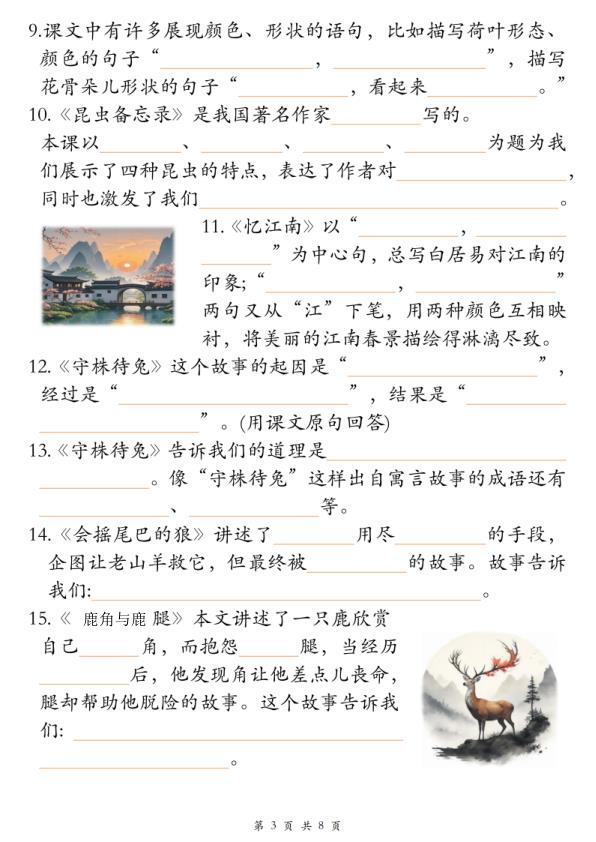 9.课文中有许多展现颜色、形状的语句，比如描写荷叶形态、
颜色的句子“____________，____________”，描写
花骨朵儿形状的句子“____________，看起来____________。”
10.《昆虫备忘录》是我国著名作家____________写的。
本课以________、________、________、________为题为我
们展示了四种昆虫的特点，表达了作者对____________，
同时也激发了我们____________。
11.《忆江南》以“____________，
________”为中心句，总写白居易对江南的
印象；“____________，____________”
两句又从“江”下笔，用两种颜色互相映
衬，将美丽的江南春景描绘得淋漓尽致。
12.《守株待兔》这个故事的起因是“____________”，
经过是“____________”，结果是“________
____________”。(用课文原句回答)
13.《守株待兔》告诉我们的道理是____________
________。像“守株待兔”这样出自寓言故事的成语还有
____________、____________等。
14.《会摇尾巴的狼》讲述了________用尽________的手段，
企图让老山羊救它，但最终被________的故事。故事告诉
我们:____________。
15.《 鹿角与鹿 腿》本文讲述了一只鹿欣赏
自己______角，而抱怨______腿，当经历
________后，他发现角让他差点儿丧命，
腿却帮助他脱险的故事。这个故事告诉我
们: ____________
____________。
第 3 页 共 8 页